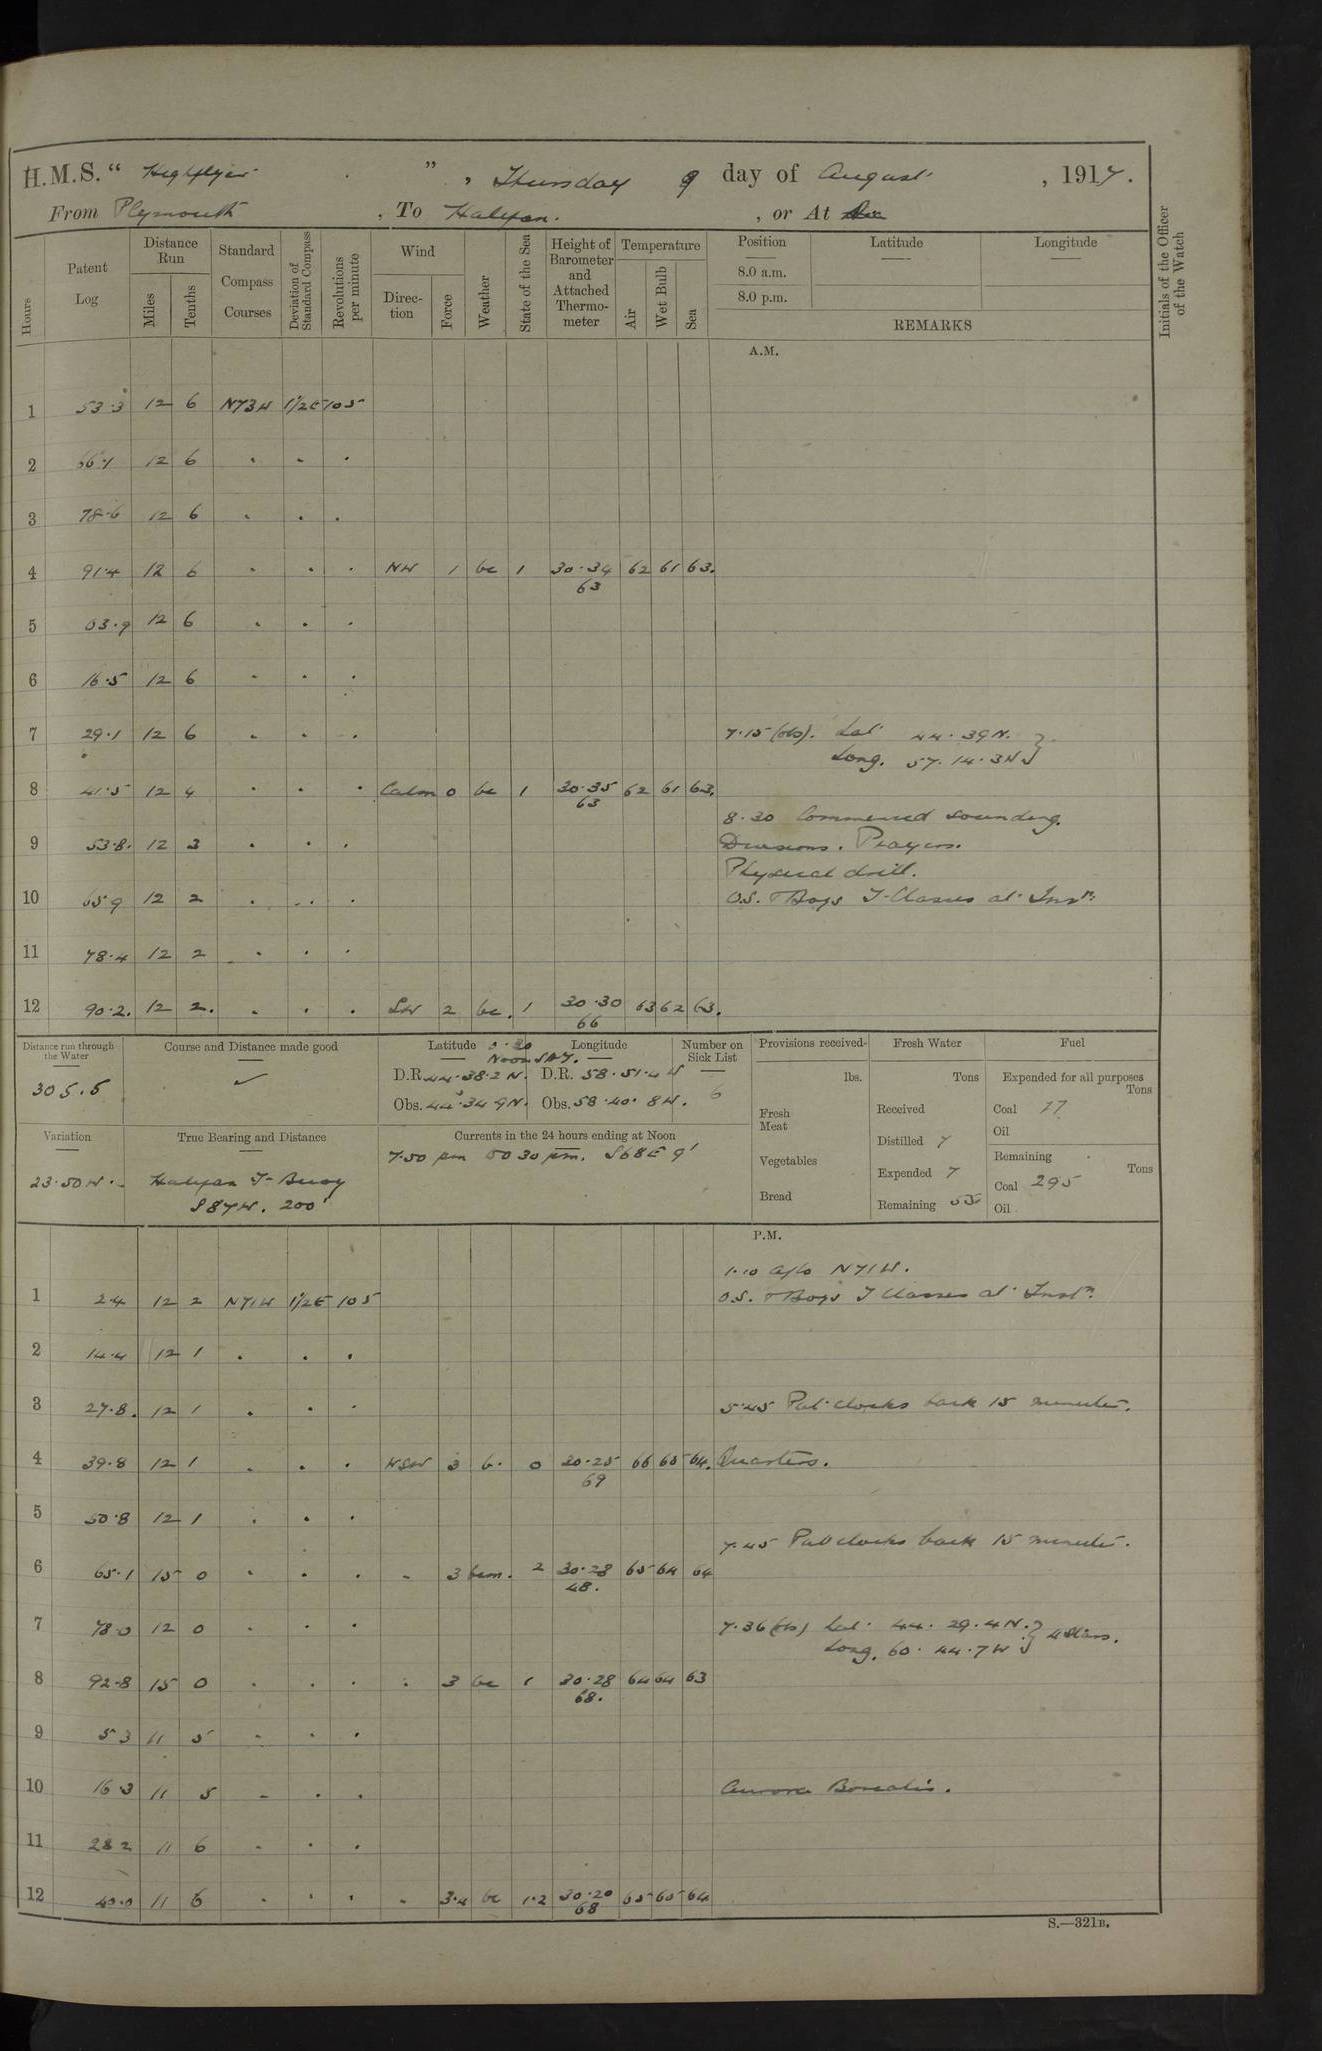 H.M.S. “ Highflyer ” , Thursday 9 day of August , 1917.
From Plymouth , To Halifax. , or At
Hours
Patent Log
Distance Run
Miles
Tenths
Standard Compass Courses
Deviation of Standard Compass
Revolutions per minute
Wind
Direction
Force
Weather
State of the Sea
Height of Barometer and Attached Thermometer
Temperature
Air
Wet Bulb
Sea
Position
8.0 a.m.
8.0 p.m.
Latitude
Longitude
REMARKS
Initials of the Officer of the Watch
A.M.
1 53.3 12 6 N73W 1½E 105
2 66.1 12 6 . . .
3 78.6 12 6 . . .
4 91.4 12 6 . . . NW 1 bc 1 30.34 62 61 63.
63
5 03.9 12 6 . . .
6 16.5 12 6 . . .
7 29.1 12 6 . . . 7.15 (obs). Lat. 44.39N.
Long. 57.14.3W
8 41.5 12 4 . . . Calm 0 bc 1 30.35 62 61 63.
63
8.30 Commenced sounding.
9 53.8. 12 3 . . . Divisions. Prayers.
Physical drill.
10 65 9 12 2 . . . O.S. & Boys T. Classes at Instn.
11 78.4 12 2 . . .
12 90.2. 12 2. . . . SW 2 bc. 1 30.30 63 62 63.
66
Distance run through the Water
305.5
Course and Distance made good
✓
Latitude Longitude
Noon
D.R. 44.38.2 N. D.R. 58.51.4 W
Obs. 44.34 9N. Obs. 58.40.8W.
Number on Sick List
6
Provisions received
lbs.
Fresh Meat
Vegetables
Bread
Fresh Water
Tons
Received
Distilled 7
Expended 7
Remaining 55
Fuel
Expended for all purposes
Tons
Coal 77
Oil
Remaining
Tons
Coal 295
Oil
Variation
23.50W.
True Bearing and Distance
Halifax T- Buoy
S87W. 200'
Currents in the 24 hours ending at Noon
7.50 pm to 30 pm. S68E 9'
P.M.
1.10 a/c N71W.
1 2.4 12 2 N71W 1½E 105 O.S. & Boys T Classes at Instn.
2 14.4 12 1 . . .
3 27.8. 12 1 . . . 5.45 Put clocks back 15 minutes.
4 39.8 12 1 . . . WSW 3 b. 0 30.25 66 65 64. Quarters.
69
5 50.8 12 1 . . .
7.45 Put clocks back 15 minutes.
6 65.1 15 0 . . . . 3 bcm. 2 30.28 65 64 64
48.
7 78.0 12 0 . . . 7.36 (obs) Lat. 44.29.4N.
Long. 60.44.7W 4 Stars.
8 92.8 15 0 . . . . 3 bc 1 30.28 64 64 63
68.
9 5 3 11 5 . . .
10 16 3 11 5 . . . Aurora Borealis.
11 28 2 11 6 . . .
12 40.0 11 6 . . . . 3.4 bc 1.2 30.20 65 65 64
68
S.—321B.